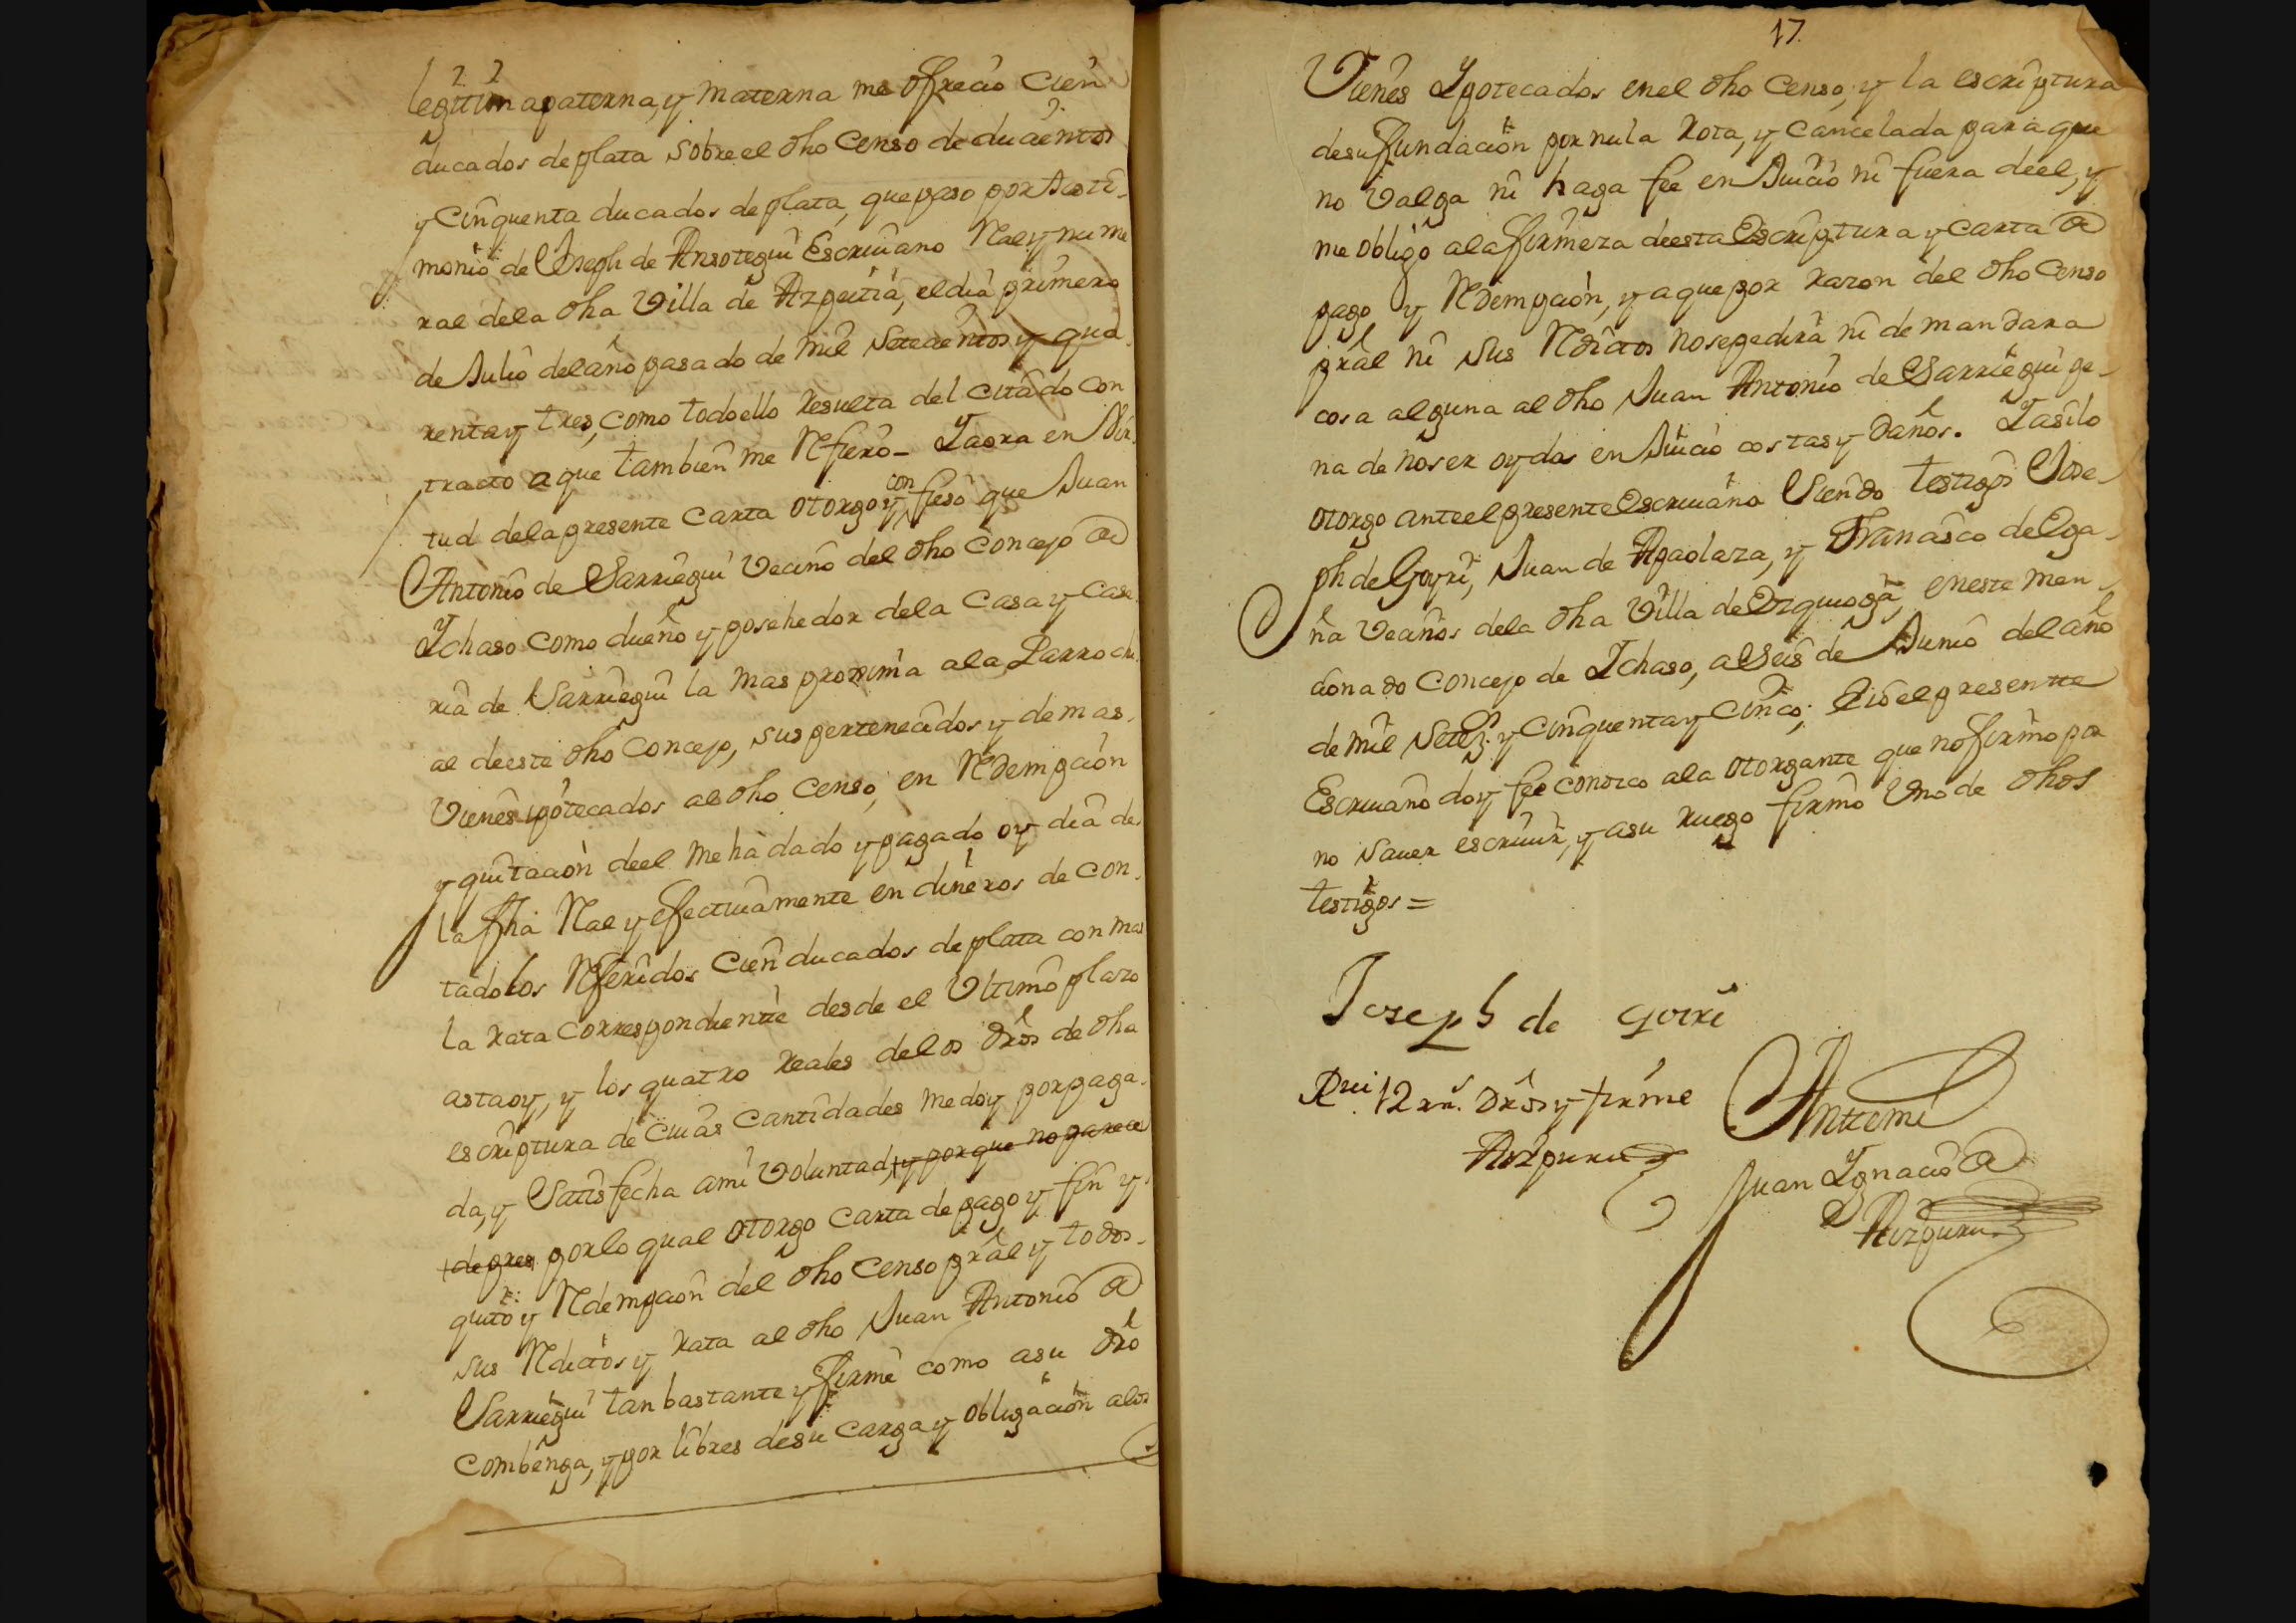 legitima paterna, y materna me ofrecio cien
ducados de plata sobre el dho censo de ducientos
y cinquenta ducados de plata, que paso por testi-
monio de Joseph de Ansotegui Escriuano Real y nume
ral dela dha Villa de Azpeitia, el dia primero
de Julio del año pasado de mil setecientos y qua
renta y tres, como todo ello resulta del citado con
tracto a que tambien me refiero - Y aora en vir
tud dela presente carta otorgo y confieso que Juan
Antonio de Sarriegui vecino del dho concejo de
Ychaso como dueño y posehedor dela casa y case
ria de Sarriegui la mas proxima ala Parrochi
al de este dho concejo, sus pertenecidos y demas
vienes ipotecados al dho censo, en redempcion
y quitacion deel me hà dado y pagado oy dia de
la fha real y efectiuamente en dineros de con
tado los referidos cien ducados de plata con mas
la rata correspondiente desde el vltimo plazo
asta oy, y los quatro reales delos dros de dha
escriptura de cuias cantidades me doy por paga
da, y satisfecha a mi voluntad, y porque no parece
de pres por lo qual otorgo carta de pago y fin y
quito y redempcion del dho censo pral y todos
sus reditos y rata al dho Juan Antonio de
Sarriegui tan bastante y firme como a su dro
combenga, y por libres de su carga y obligacion alos
17
Vienes Ypotecados enel dho censo, y la escriptura
de su fundacion por nula rota, y cancelada para que
no valga ni haga fee en Juicio ni fuera deel, y
me obligo ala firmeza de esta Escriptura y carta de
pago y redempcion, y a que por razon del dho censo
pral ni sus reditos no se pedirà ni demandara
cosa alguna al dho Juan Antonio de Sarriegui pe-
na de no ser oydos en Juicio costas y daños. Y asi lo
otorgo ante el presente Escriuano siendo testigos Jose-
ph de Goyri, Juan de Apaolaza, y Francisco de Ega-
ña vecinos dela dha Villa de Ezquioga, en este men-
cionado concejo de Ychaso, a seis de Junio del año
de mil setez.s y cinquenta y cinco; E io el presente
Escriuano doy fee conozco ala otorgante que no firmo por
no sauer escriuir, y a su ruego firmo vno de dhos
testigos =
Joseph de goiri
Rui 12 rs. dros y firme
Aizpuru
Anttemi
Juan Ygnacio de
Aizpuru